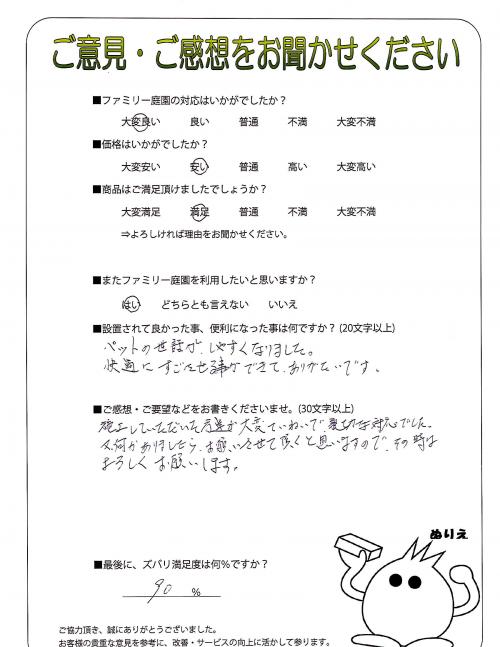 ご意見・ご感想をお聞かせください
■ファミリー庭園の対応はいかがでしたか？
大変良い 良い 普通 不満 大変不満
■価格はいかがでしたか？
大変安い 安い 普通 高い 大変高い
■商品はご満足頂けましたでしょうか？
大変満足 満足 普通 不満 大変不満
⇒よろしければ理由をお聞かせください。
■またファミリー庭園を利用したいと思いますか？
はい どちらとも言えない いいえ
■設置されて良かった事、便利になった事は何ですか？(20文字以上)
ペットの世話が、しやすくなりました。
快適にすごせる事ができて、ありがたいです。
■ご感想・ご要望などをお書きくださいませ。(30文字以上)
施工していただいた方達が大変ていねいで、親切な対応でした。
又何かありましたら、お願いさせて頂くと思いますので、その時は
よろしくお願いします。
ぬりえ
■最後に、ズバリ満足度は何%ですか？
90 %
ご協力頂き、誠にありがとうございました。
お客様の貴重な意見を参考に、改善・サービスの向上に活かして参ります。